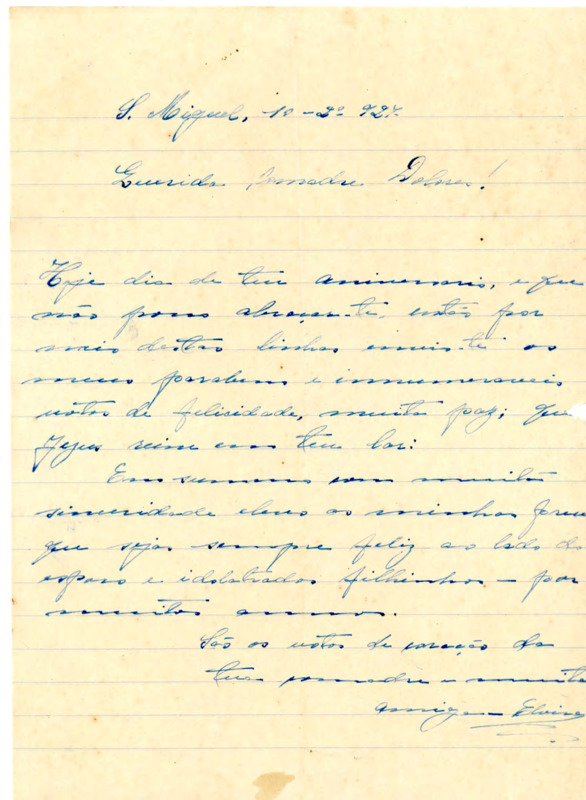 S. Miguel, 10 - 2º 927.
Querida comadre Dolores!
Hoje dia de teu aniversario, e que
não posso abraçar-te, então por
meio destas linhas envio-te os
meus parabens e innumeraveis
votos de felicidade, muita paz; que
Jezus reine em teu lar:
Em summa com muita
sinceridade elevo as minhas
que sejas sempre feliz ao lado do
esposo e idolatrados filhinhos - por
muitos annos.
São os votos de coração da
tua comadre e muito
amiga - Elvira